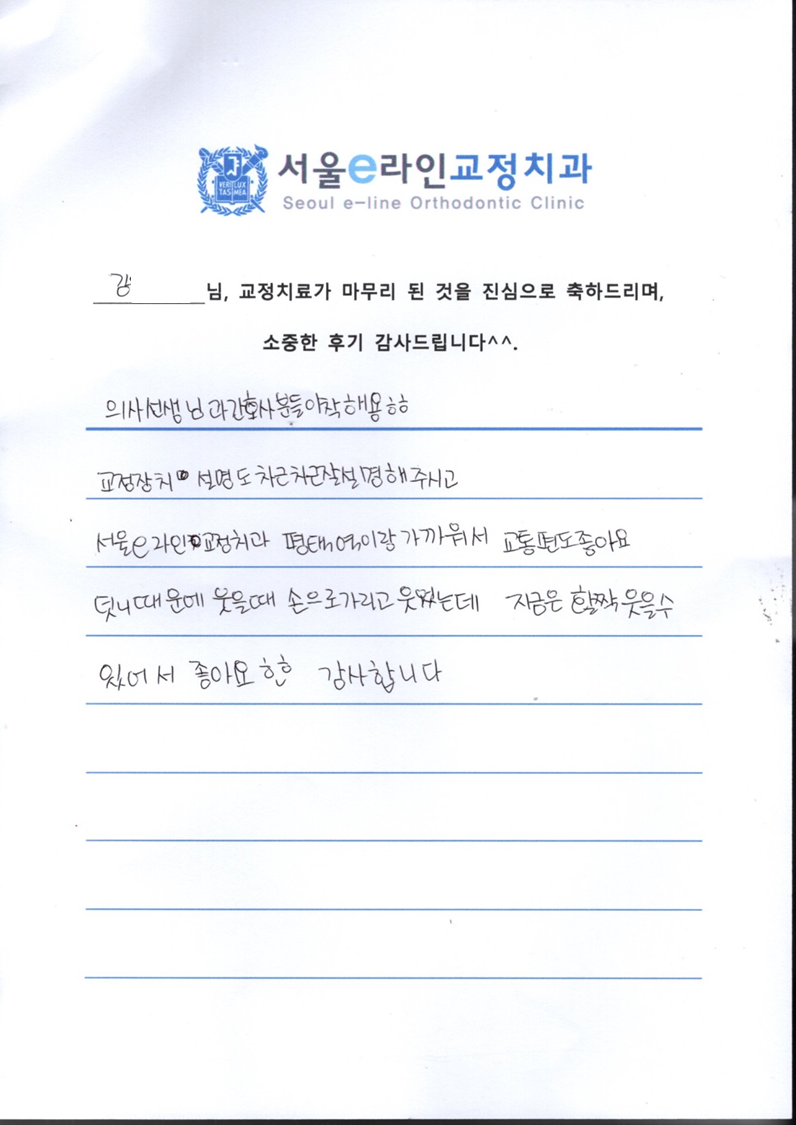 VERI LUX
TAS MEA
서울e라인교정치과
Seoul e-line Orthodontic Clinic
님, 교정치료가 마무리 된 것을 진심으로 축하드리며,
소중한 후기 감사드립니다^^.
의사선생님과간호사분들이착해용ㅎㅎ
교정장치 설명도차근차근잘설명해주시고
서울e라인교정치과 평택역이랑 가까워서 교통편도좋아요
덧니때문에 웃을때 손으로가리고웃었는데 지금은 활짝웃을수
있어서 좋아요ㅎㅎ 감사합니다